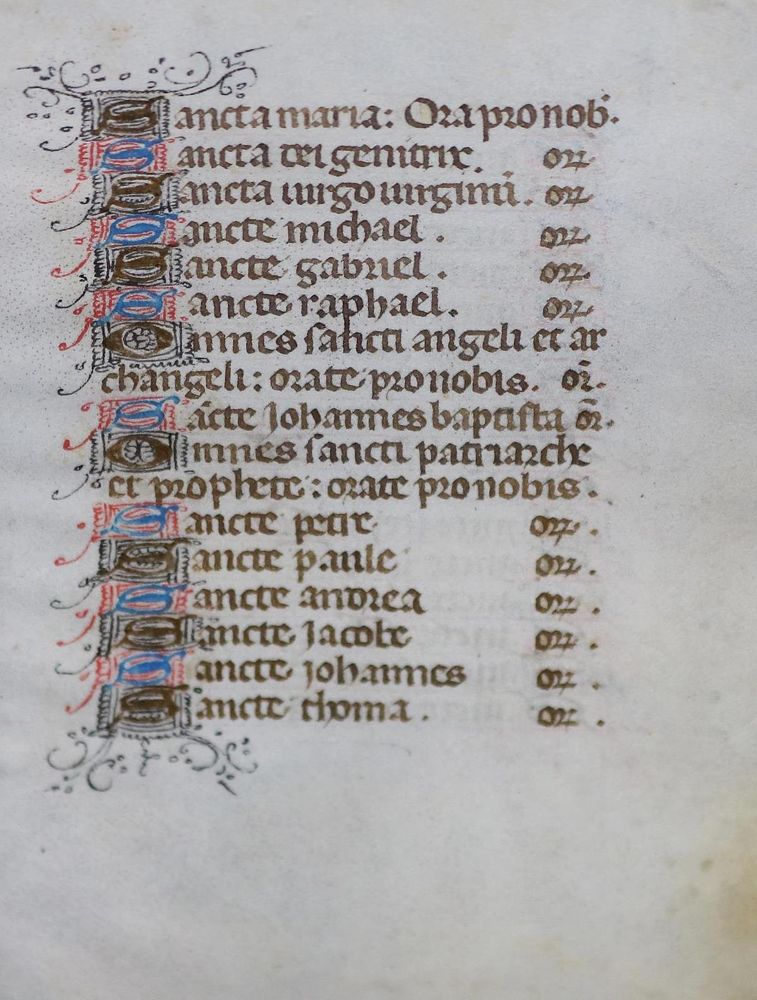 Sancta maria: Ora pro nob̄.
Sancta dei genitrix. or̄.
Sancta uirgo uirginū. or̄.
Sancte michael. or̄.
Sancte gabriel. or̄.
Sancte raphael. or̄.
Omnes sancti angeli et ar
changeli: orate pro nobis. or̄.
Sācte Johannes baptista or̄.
Omnes sancti patriarche
et prophete: orate pro nobis.
Sancte petre or̄.
Sancte paule or̄.
Sancte andrea or̄.
Sancte Jacobe or̄.
Sancte johannes or̄.
Sancte thoma. or̄.